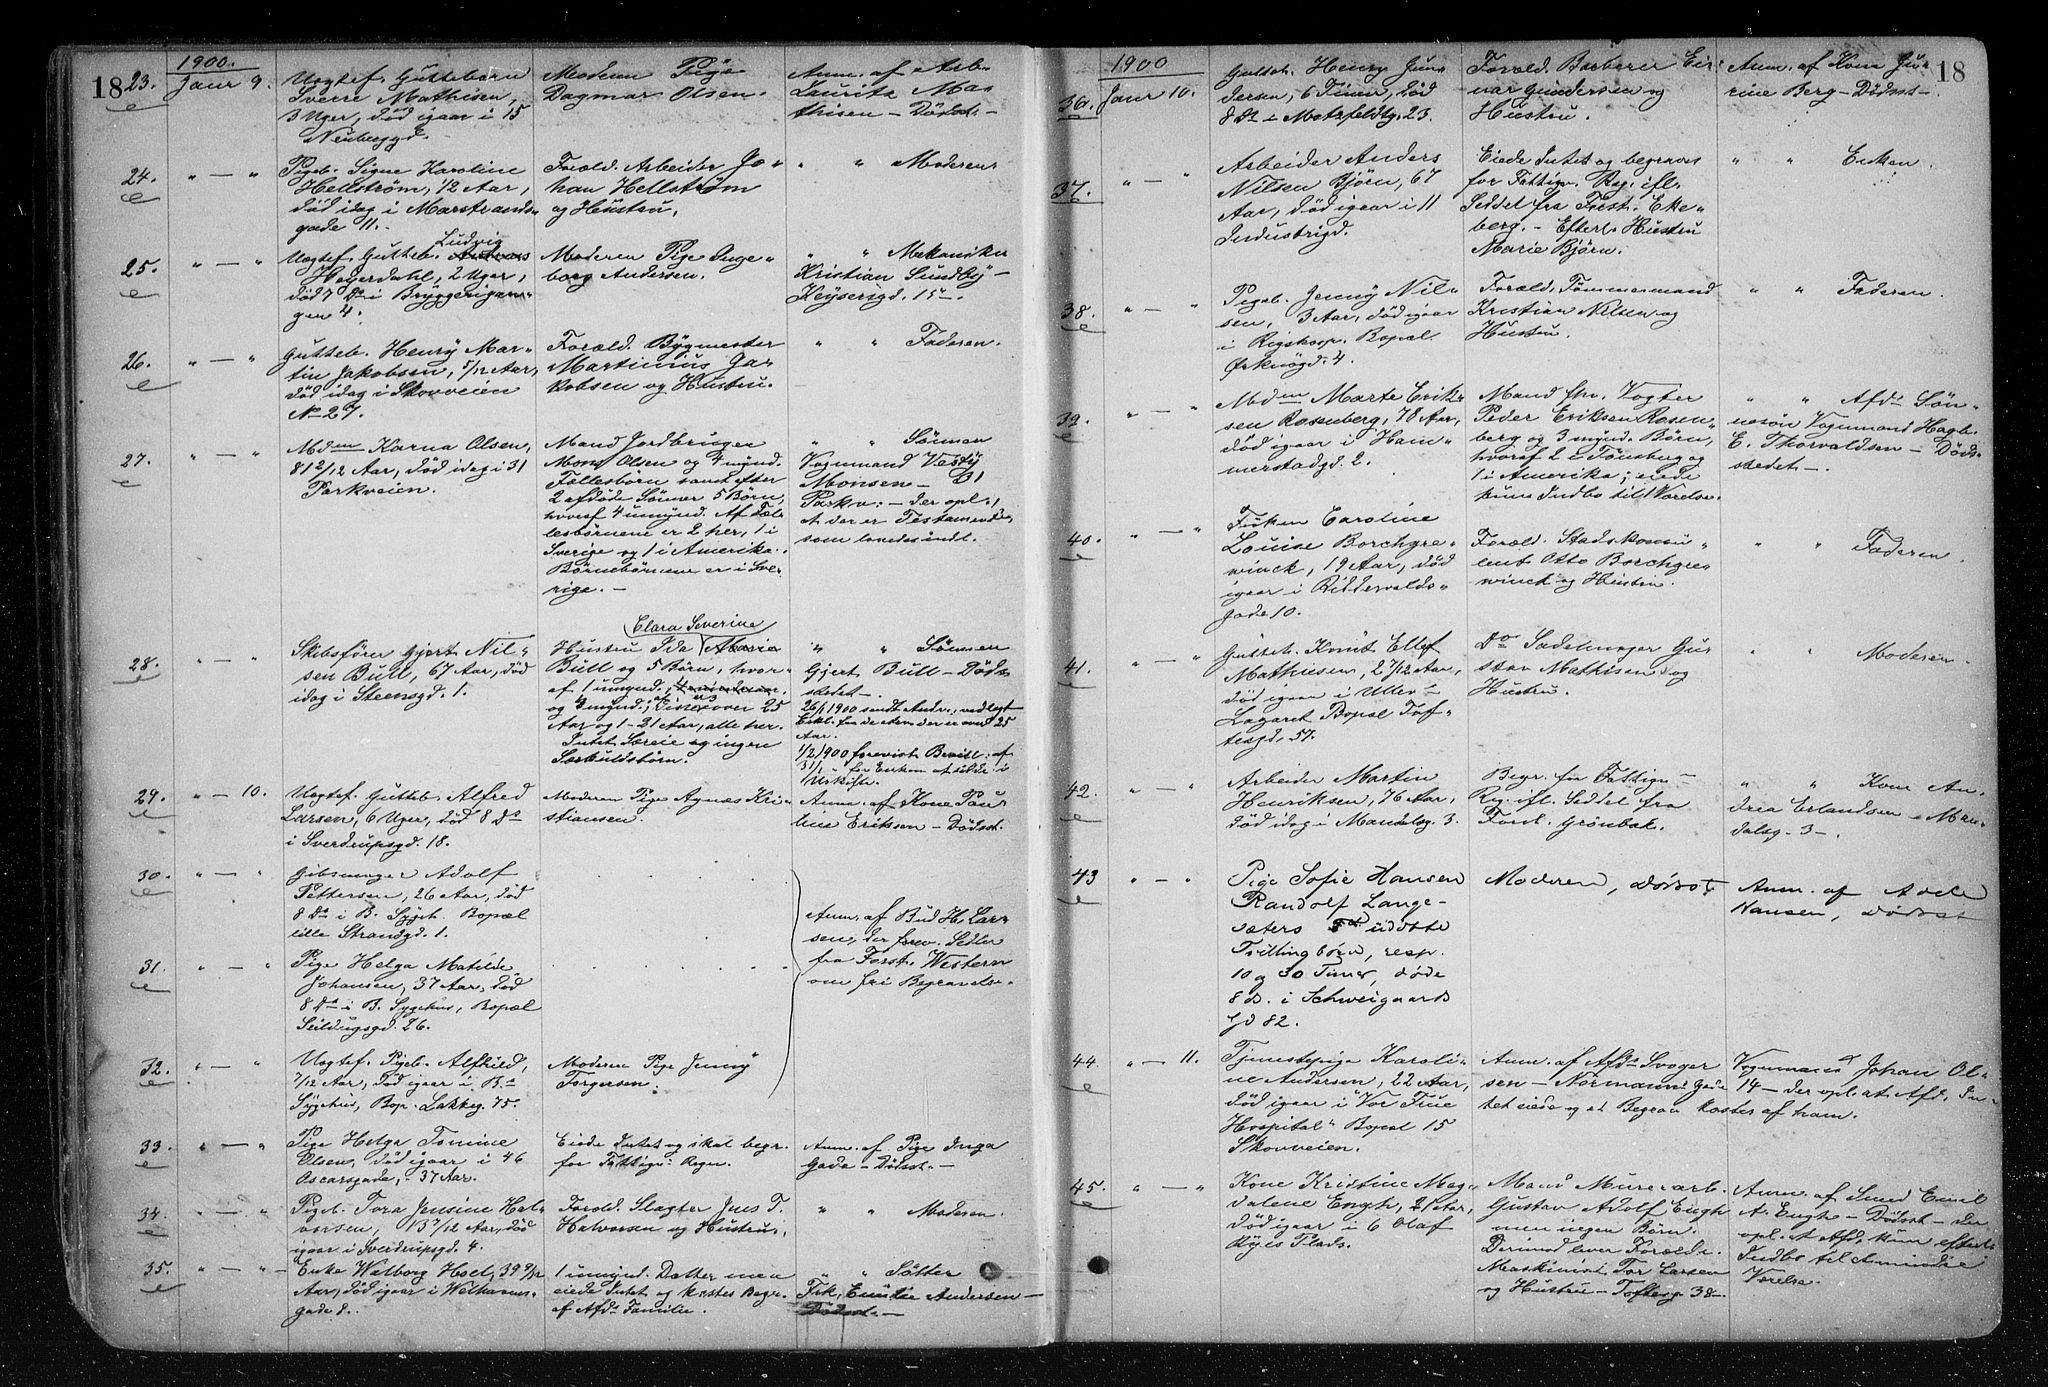 18
1900.
23. Janr 9. Uegtef. Guttebarn
Sverre Mathisen,
3 Uger, død igaar i 15
Neuberggd.
Moderen Pige
Dagmar Olsen.
Anm. af Arb.
Lauritz Ma-
thisen – Dødsst. –
24. " — " Pigeb. Signe Karoline
Hellstrøm, 1/2 Aar,
død idag i Marstrands-
gade 11.
Foræld. Arbeider Jo-
han Hellstrøm
og Hustru.
" " Moderen
25. " — " Uegtef. Gutteb. Ludvig Andreas
Heyerdahl, 2 Uger,
død 7 Ds i Bryggerigan-
gen 4.
Moderen Pige Inge-
borg Andersen.
" " Mekaniker
Kristian Sundby –
Keysersgd. 15
26. " — " Gutteb. Henry Mar-
tin Jakobsen, 5/12 Aar,
død idag i Skovveien
No 27.
Foræld. Bygmester
Martinius Ja-
kobsen og Hustru.
" " Faderen.
27. " — " Mdm Karna Olsen,
81 2/12 Aar, død idag i 31
Parkveien.
Mand Jordbruger
Mons Olsen og 4 mynd.
Fællesbørn samt efter
2 afdøde Sønner 5 Børn,
hvoraf 4 umynd. Af Fæl-
lesbørnene er 2 her, 1 i
Sverige og 1 i Amerika.
Børnebørnene er i Sve-
rige. –
" " Sønnen
Vognmand
Monsen – 31
Parkv. – der opl.,
at der er Testamente,
som
28. " — " Skibsfører Gjert Nil-
sen Bull, 67 Aar, død
idag i Steensgd. 1.
Clara Severine
Hustru Ida Maria
Bull og 5 Børn, hvor-
af 1 umynd.,
og mynd.; over 25
Aar og 1 – 21 Aar, alle her.
Intet Særeie og ingen
Særkuldsbørn.
" " Sønnen
Gjert Bull – Døds-
stedet –
26/1 1900 sendt
Aar.
1/2 1900 forevist Bevill. af
31/1 for Enken at sidde i
Uskifte.
29. " — 10. Uegtef. Gutteb. Alfred
Larsen, 6 Uger, død 8 Ds
i Sverdrupsgd. 18.
Moderen Pige Agnes Kri-
stiansen.
Anm. af Kone Pau-
line Eriksen – Dødsst.
30 " — " Gibsmager Adolf
Pettersen, 26 Aar, død
8 Ds i B. Sygeh. Bopæl
lille Strandgd. 1.
Anm. af Bud H. Lar-
sen, der forev. Sedler
fra Forst. Western
om fri Begravelse.
31. " — " Pige Helga Matilde
Johansen, 37 Aar, død
8 Ds i B. Sygehus, Bopæl
Seildugsgd. 26.
32. " — " Uegtef. Pigeb. Alfhild,
7/12 Aar, død igaar i B.s
Sygehus, Bop. Lakkeg. 75.
Moderen Pige Jenny
Torgersen.
33. " — " Pige Helga Tomine
Olsen, død igaar i 46
Oscarsgade, – 37 Aar.
Eiede Intet og skal begr.
for Fattigv. Regn.
Anm. af Pige Inga
Gade – Dødsst. –
34. " — " Pigeb. Tora Jensine Hal-
vorsen, 13 7/12 Aar, død
igaar i Sverdrupsgd. 4.
Foræld. Slagter Jens T.
Halvorsen og Hustru.
" " Moderen.
35. " — " Enke Walborg Holt, 39 9/12
Aar, død igaar i Welhavens-
gade 8.
1 umynd. Datter men
eiede Intet og kostes Begr.
af Afds Familie.
" " Søster
Frk. Emilie Andersen –
Dødsst. –
18
1900
36. Janr 10. Gutteb. Henry Gun-
dersen, 6 Timer, død
8 Ds i Motzfeldtg. 23.
Foræld. Barberer Ei-
nar Gundersen og
Hustru.
Anm. af Kone Ju-
rine Berg – Dødsst –
37. " — " Arbeider Anders
Nilsen Bjørn, 67
Aar, død igaar i 11
Industrigd.
Eiede Intet og begraves
for Fattigv. Reg. ifl.
Seddel fra Forst. Eke-
berg. – Efterl. Hustru
Marie Bjørn.
" " Enken.
38. " — " Pigeb. Jenny Nil-
sen, 3 Aar, død igaar
i Rigshosp. Bopæl
Ørknøgd. 4.
Foræld. Tømmermand
Kristian Nilsen og
Hustru.
" " Faderen.
39. " — " Mdm Marte Erik-
sen Rosenberg, 78 Aar,
død igaar i Ham-
merstadgd. 2.
Mand fhv. Vogter
Peder Eriksen Rosen-
berg og 3 mynd. Børn,
hvoraf 2 i Tønsberg og
1 i Amerika; eiede
kun Indbo til 1 Værelse.
" " Afds Søn-
nesøn Vognmand Hagb.
E. Thorvaldsen – Døds-
stedet –.
40. " — " Frøken Caroline
Louise Borchgre-
vinck, 19 Aar, død
igaar i Riddervolds-
gade 10.
Foræld. Stadskonsu-
lent Otto Borchgre-
vinck og Hustru.
" " Faderen.
41. " — " Gutteb. Knut Ellef
Mathiesen, 2 7/12 Aar,
død igaar i Ullev.
Lazaret Bopæl Tof-
tesgd. 57.
Do Sadelmager Gu-
stav Mathisen og
Hustru.
" " Moderen.
42. " — " Arbeider Martin
Henriksen, 76 Aar,
død idag i Mandalsg. 3.
Begr. for Fattigv.
Reg. ifl. Seddel fra
Forst. Grønbæk.
" " Kone An-
drea Erlandsen – Man-
dalsg. 3 –.
43 " — " Pige Sofie Hansen
Randolf Lange-
sæters udøbte
Tvillingbørn, resp.
10 og 30 Timer, døde
8 ds. i Schweigaards
Gd 82.
Moderen, dødsst.
Anm. af Adele
Hansen, dødsst
44. " — 11. Tjenestepige Karoli-
ne Andersen, 22 Aar,
død igaar i "Vor Frue
Hospital" Bopæl 15
Skovveien.
Anm. af Afds Svoger Vognmand Johan Ol-
sen – Normanns Gade 14 – der opl. at Afd. In-
tet eiede og at Begrav. kostes af ham.
45. " — " Kone Kristine Mag-
dalene Engh, 21 Aar,
død igaar i 6 Olaf
Ryes Plads.
Mand Murerarb.
Gustav Adolf Engh
men ingen Børn.
Derimod lever Foræld.
Maskinist Tor Larsen
og Hustru – Tofteg. 38 –
Anm. af Smed Emil
A. Engh – Dødsst – der
opl. at Afd. kun efterl.
Indbo til Almindre
Værelse.